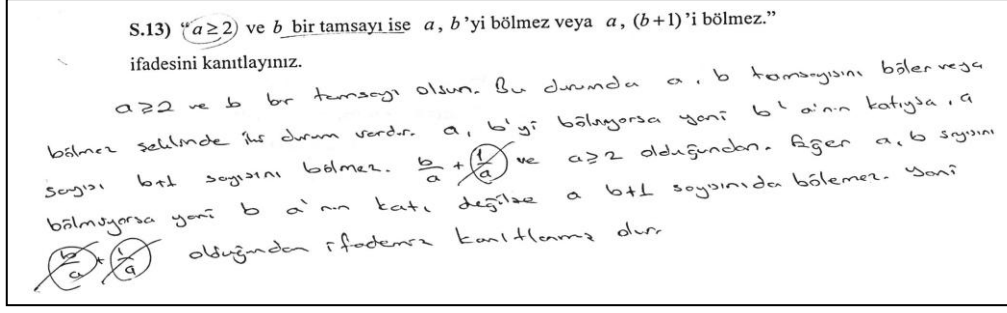 S.13) “a ≥ 2) ve b bir tamsayı ise a, b’yi bölmez veya a, (b+1)’i bölmez.”
ifadesini kanıtlayınız.
a≥2 ve b bir tamsayı olsun. Bu durumda a, b tamsayısını böler veya
bölmez şeklinde iki durum vardır. a, b'yi bölüyorsa yani b a'nın katıysa, a
sayısı b+1 sayısını bölmez. b/a + 1/a ve a≥2 olduğundan. Eğer a, b sayısını
bölmüyorsa yani b a'nın katı değilse a b+1 sayısınıda bölemez. Yani
b/a + 1/a olduğundan ifademiz kanıtlanmış olur.